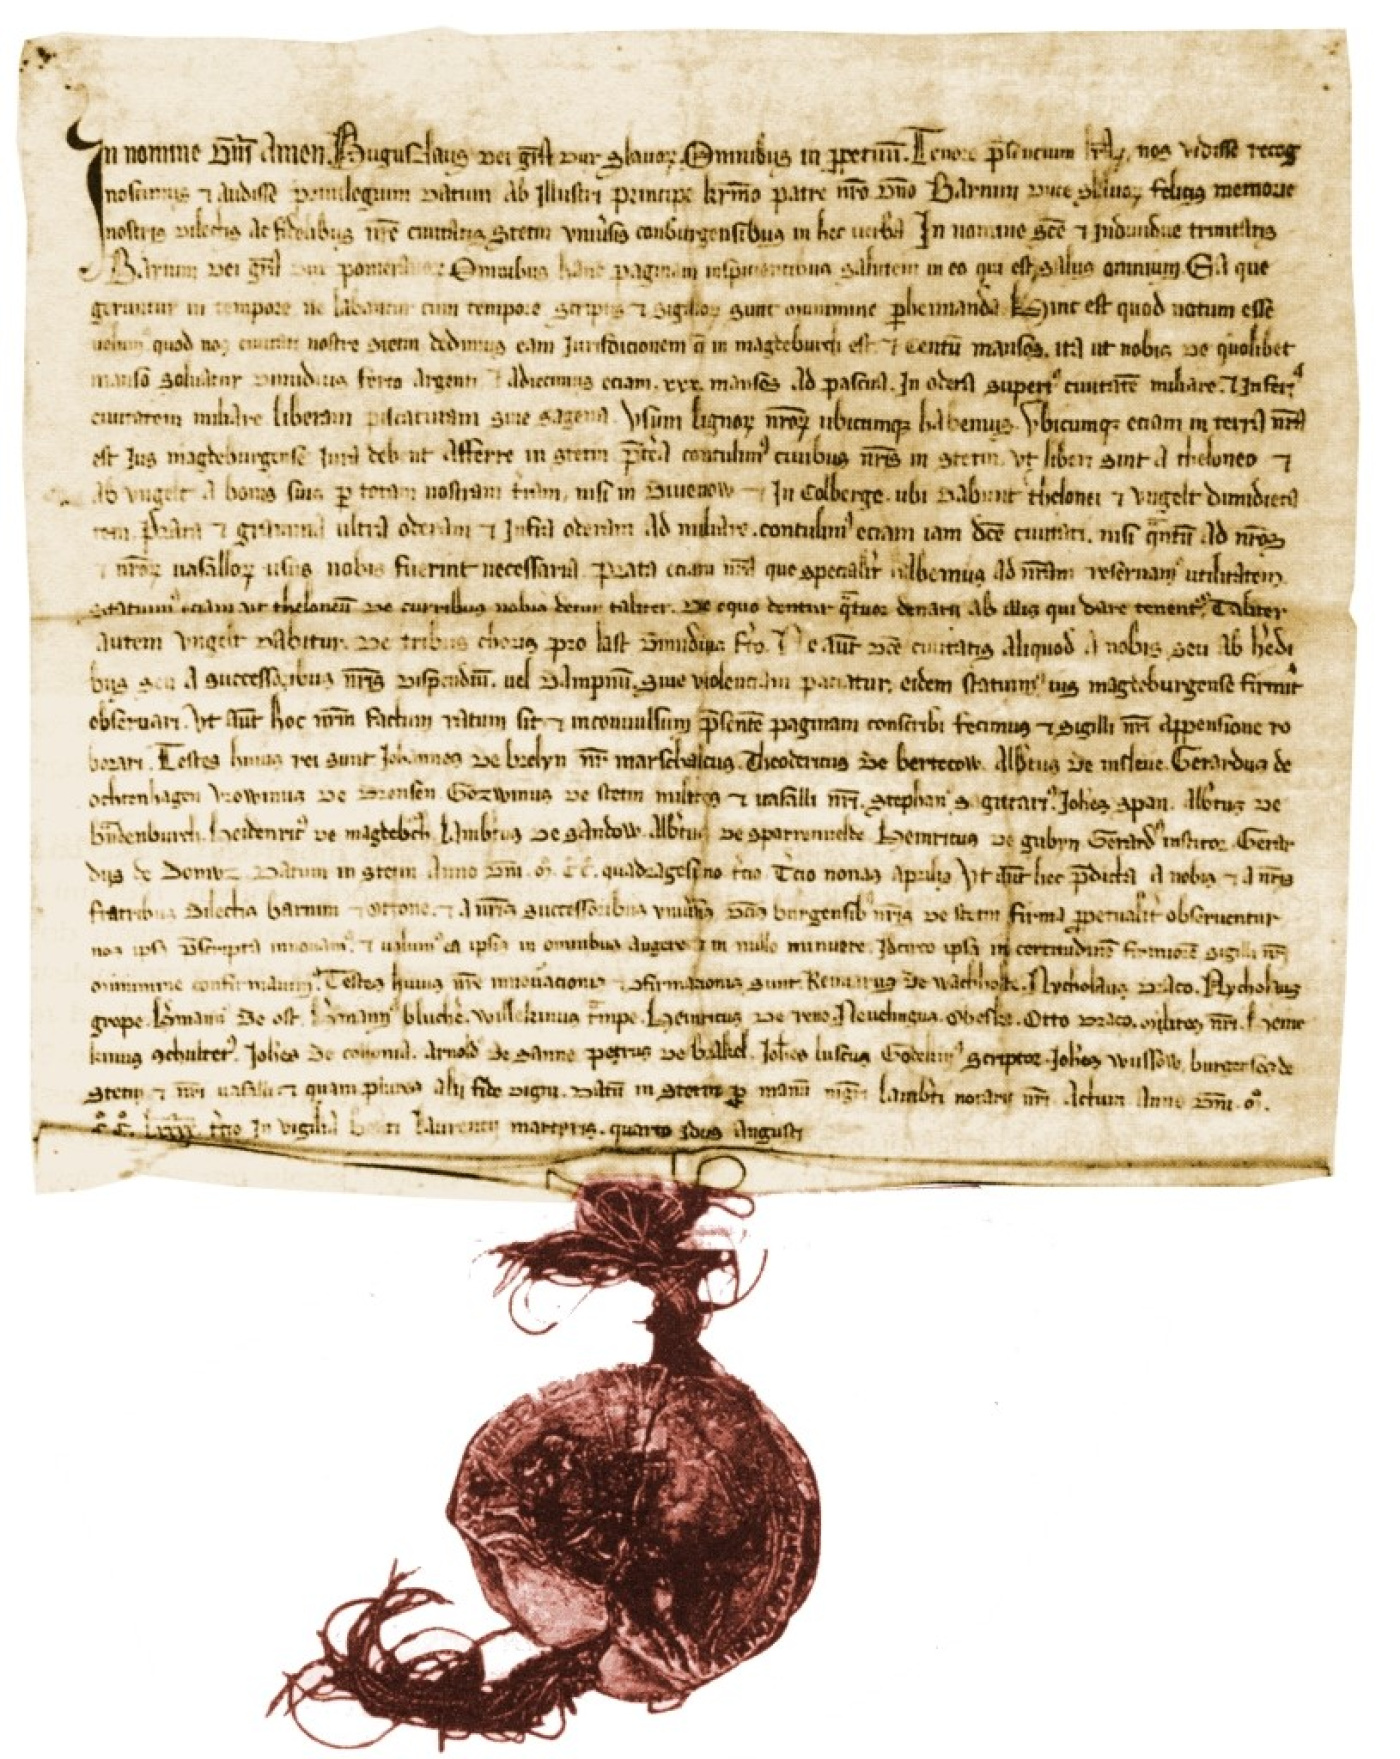 In nomine dn̄i amen. Buguslaus dei gr̄a dux slauoꝝ. Omnibus in ꝑpetuū. Tenore p̄sencium nos vidisse recog
noscimus ⁊ audisse priuilegium datum ab Illustri principe kr̄mo patre nr̄o dn̄o Barnim duce slauoꝝ felicis memorie
nostris dilectis ac fidelibus nr̄e ciuitatis Stetin vniūsis conburgensibus in hec uerba In nomine sc̄e ⁊ indiuidue trinitatis
Barnim dei gr̄a dux pomeranoꝝ Omnibus hanc paginam inspicientibus salutem in eo qui est salus omnium. Ea que
geruntur in tempore ne labantur cum tempore scriptis ⁊ sigillis sunt munimine ꝑhennanda. Hinc est quod notum esse
uolum⁹ quod nos ciuitati nostre Stetin dedimus eam Jurisdicionem q̄ in magdeburch est ⁊ Centū mansos. ita ut nobis de quolibet
manso soluatur dimidius ferto argenti ⁊ adiecimus eciam .xxx. mansos ad pascua. In odera superi⁹ ciuitatē miliare. ⁊ Inferi⁹
ciuitatem miliare liberam piscaturam siue sagena. Vsum lignoꝝ nr̄oꝝ ubicumqꝫ habemus. Vbicumqꝫ eciam in terra nr̄a
est Jus magdeburgense Jura debent afferre in Stetin. p̄tēa contulim⁹ ciuibus nr̄is in Stetin. vt liberi sint a theloneo ⁊
ab vngelt a bonis suis ꝑ totam nostram tr̄am, nisi in Diuenow ⁊ In Colberge. ubi dabunt thelonei ⁊ vngelt dimidieta
tem. Prata ⁊ gramina ultra oderam ⁊ Infra oderam ad miliare. contulim⁹ eciam iam dc̄e ciuitati. nisi q̄ntū ad nr̄os
⁊ nr̄oꝝ uasalloꝝ usus nobis fuerint necessaria. Prata eciam nr̄a que specialit̄ habemus ad nr̄am reseruam⁹ utilitatem.
Statuim⁹ eciam ut theloneū de curribus nobis detur taliter. De equo dentur q̄tuor denarii ab illis qui dare tenent̄. Taliter
autem vngelt dabitur. De tribus choris pro last dimidius fr̄to. Ne aūt dc̄e ciuitatis aliquod a nobis seu ab hēdi
bus seu a successoribus nr̄is dispendiū. uel dampnū. siue violenciam paciatur. eidem statuim⁹ ius magdeburgense firmit̄
obseruari. Vt aūt hoc nr̄m factum ratum sit ⁊ inconuulsum p̄sentē paginam conscribi fecimus ⁊ sigilli nr̄i appensione ro
borari. Testes huius rei sunt Johannes de brelyn nr̄ marschalcus. Theodericus de bertecow. Alb̄tus de insleue. Gerardus de
ochtenhagen Wrowinus de Drensen. Gozwinus de stetin milites ⁊ uasalli nr̄i. Stephan⁹ sagittari⁹. Joh̄es span. Alb̄tus de
br̄adenburch. Heidenric⁹ de magdeb̄ch. Lambr̄tus de sandow. Alb̄tus de sparrenuelde. Heinricus de gubyn Gerard⁹ institor. Gerar
dus de Datum in Stetin Anno dn̄i. m̊. c̊c̊. quadragesimo t̄cio T̄cio nonas aprilis Vt aūt hec p̄dicta a nobis ⁊ a nr̄is
fratribus dilectis barnim ⁊ ottone. ⁊ a nr̄is successoribus vniūsis dc̄is burgensib⁹ nr̄is de stetin firma ꝑpetualit̄ obseruentur
nos ipsa p̄scripta innouam⁹. ⁊ uolum⁹ ea ipsis in omnibus augere ⁊ in nullo minuere. Idcirco ipsa in certitudinē firmiorē sigilli nr̄i
munimine confirmauim⁹. Testes huius nr̄e innouacionis ⁊ ꝯfirmacionis sunt. Reinarus de wachholte. Nycholaus draco. Nycholaus
grope. de ost. bluchē. willekinus t̄mpe. Heinricus de reno. Neuelingus. Obeske. Otto draco. milites nr̄i. Heine
kinus schultet⁹. Joh̄es de colonia. Arnold⁹ de Sanne petrus de Brakel. Joh̄es luscus Godekin⁹ scriptor. Joh̄es wussow. burgenses de
Stetin ⁊ nr̄i uasalli ⁊ quam plures alii fide digni. Datū in Stetin ꝑ manū mḡri lamb̄ti notarii nr̄i. Actum Anno dn̄i. m̊.
c̊. c̊. lxxx. t̄cio In vigilia beati Laurencij martyris. quarto idus augusti